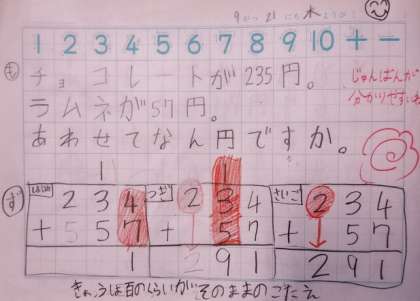 9がつ21にち木ようび
1 2 3 4 5 6 7 8 9 10 + −
も チョコレートが235円。
ラムネが57円。
あわせてなん円ですか。
じゅんばんが
分かりやすいね
1
ず はじめ つぎ さいご
234 234 234
+ 557 + 57 + 57
1 291 291
きょうは百のくらいがそのままのこたえ